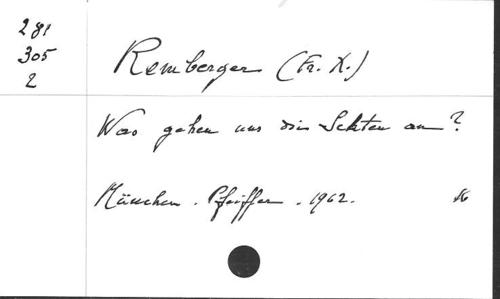 281
305
2
Remberger (Fr. X.)
Was gehen uns die Sekten an?
München. Pfeiffer. 1962.